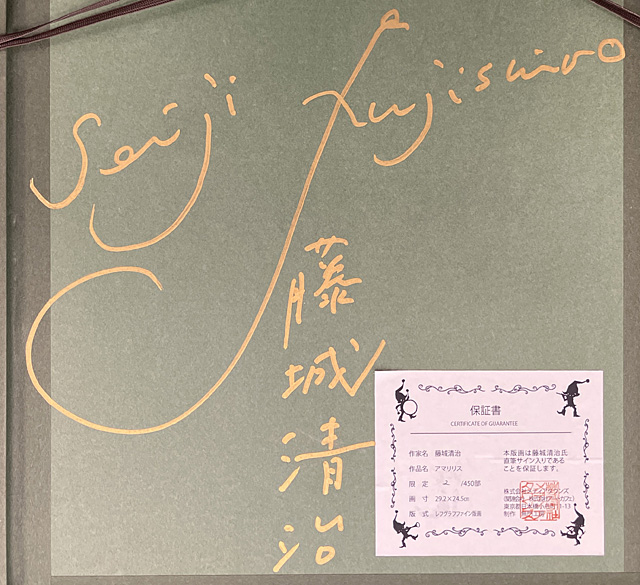 Seiji Fujishiro
藤城清治
保証書
CERTIFICATE OF GUARANTEE
作家名 藤城清治
作品名 アマリリス
限定 2 /450部
画寸 29.2×24.5cm
版式 レフグラフファイン版画
本版画は藤城清治氏
直筆サイン入りである
ことを保証します。
株式会社
東京都
制作